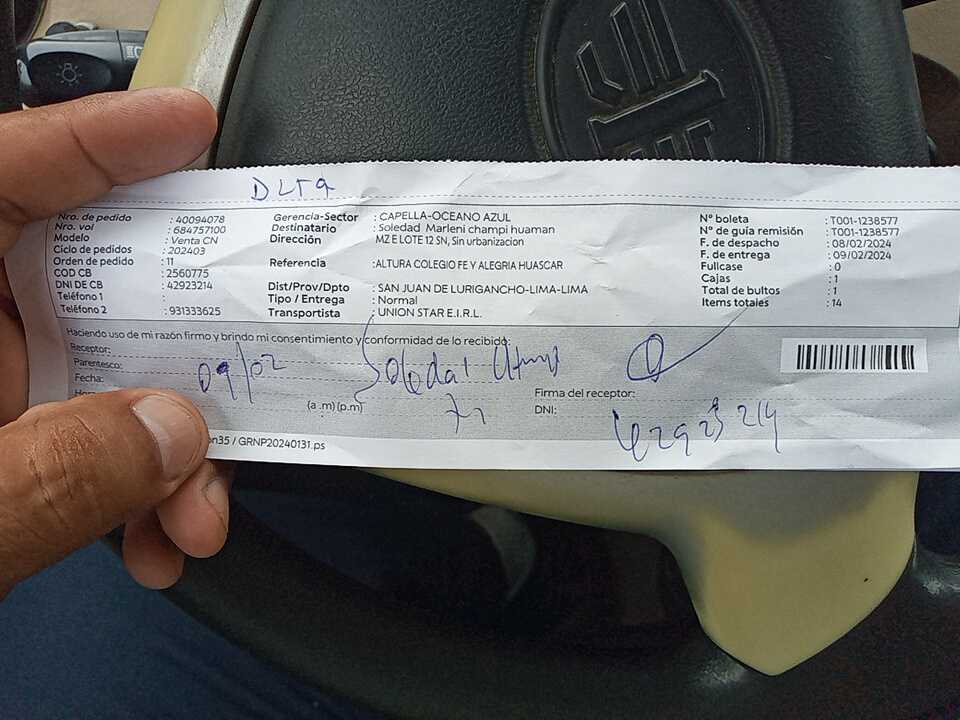 Nro. de pedido : 40094078
Nro. vol : 684757100
Modelo : Venta CN
Ciclo de pedidos : 202403
Orden de pedido : 11
COD CB : 2560775
DNI DE CB : 42923214
Teléfono 1 :
Teléfono 2 : 931333625
Gerencia-Sector : CAPELLA-OCEANO AZUL
Destinatario : Soledad Marleni champi huaman
Dirección MZ E LOTE 12 SN, Sin urbanizacion
Referencia : ALTURA COLEGIO FE Y ALEGRIA HUASCAR
Dist/Prov/Dpto : SAN JUAN DE LURIGANCHO-LIMA-LIMA
Tipo / Entrega : Normal
Transportista : UNION STAR E.I.R.L.
Nº boleta : T001-1238577
Nº de guía remisión : T001-1238577
F. de despacho : 08/02/2024
F. de entrega : 09/02/2024
Fullcase : 0
Cajas : 1
Total de bultos : 1
Items totales : 14
Haciendo uso de mi razón firmo y brindo mi consentimiento y conformidad de lo recibido:
Receptor:
Parentesco:
Fecha: 09/02
(a.m) (p.m)
Firma del receptor:
DNI: 42923214
/ GRNP20240131.ps